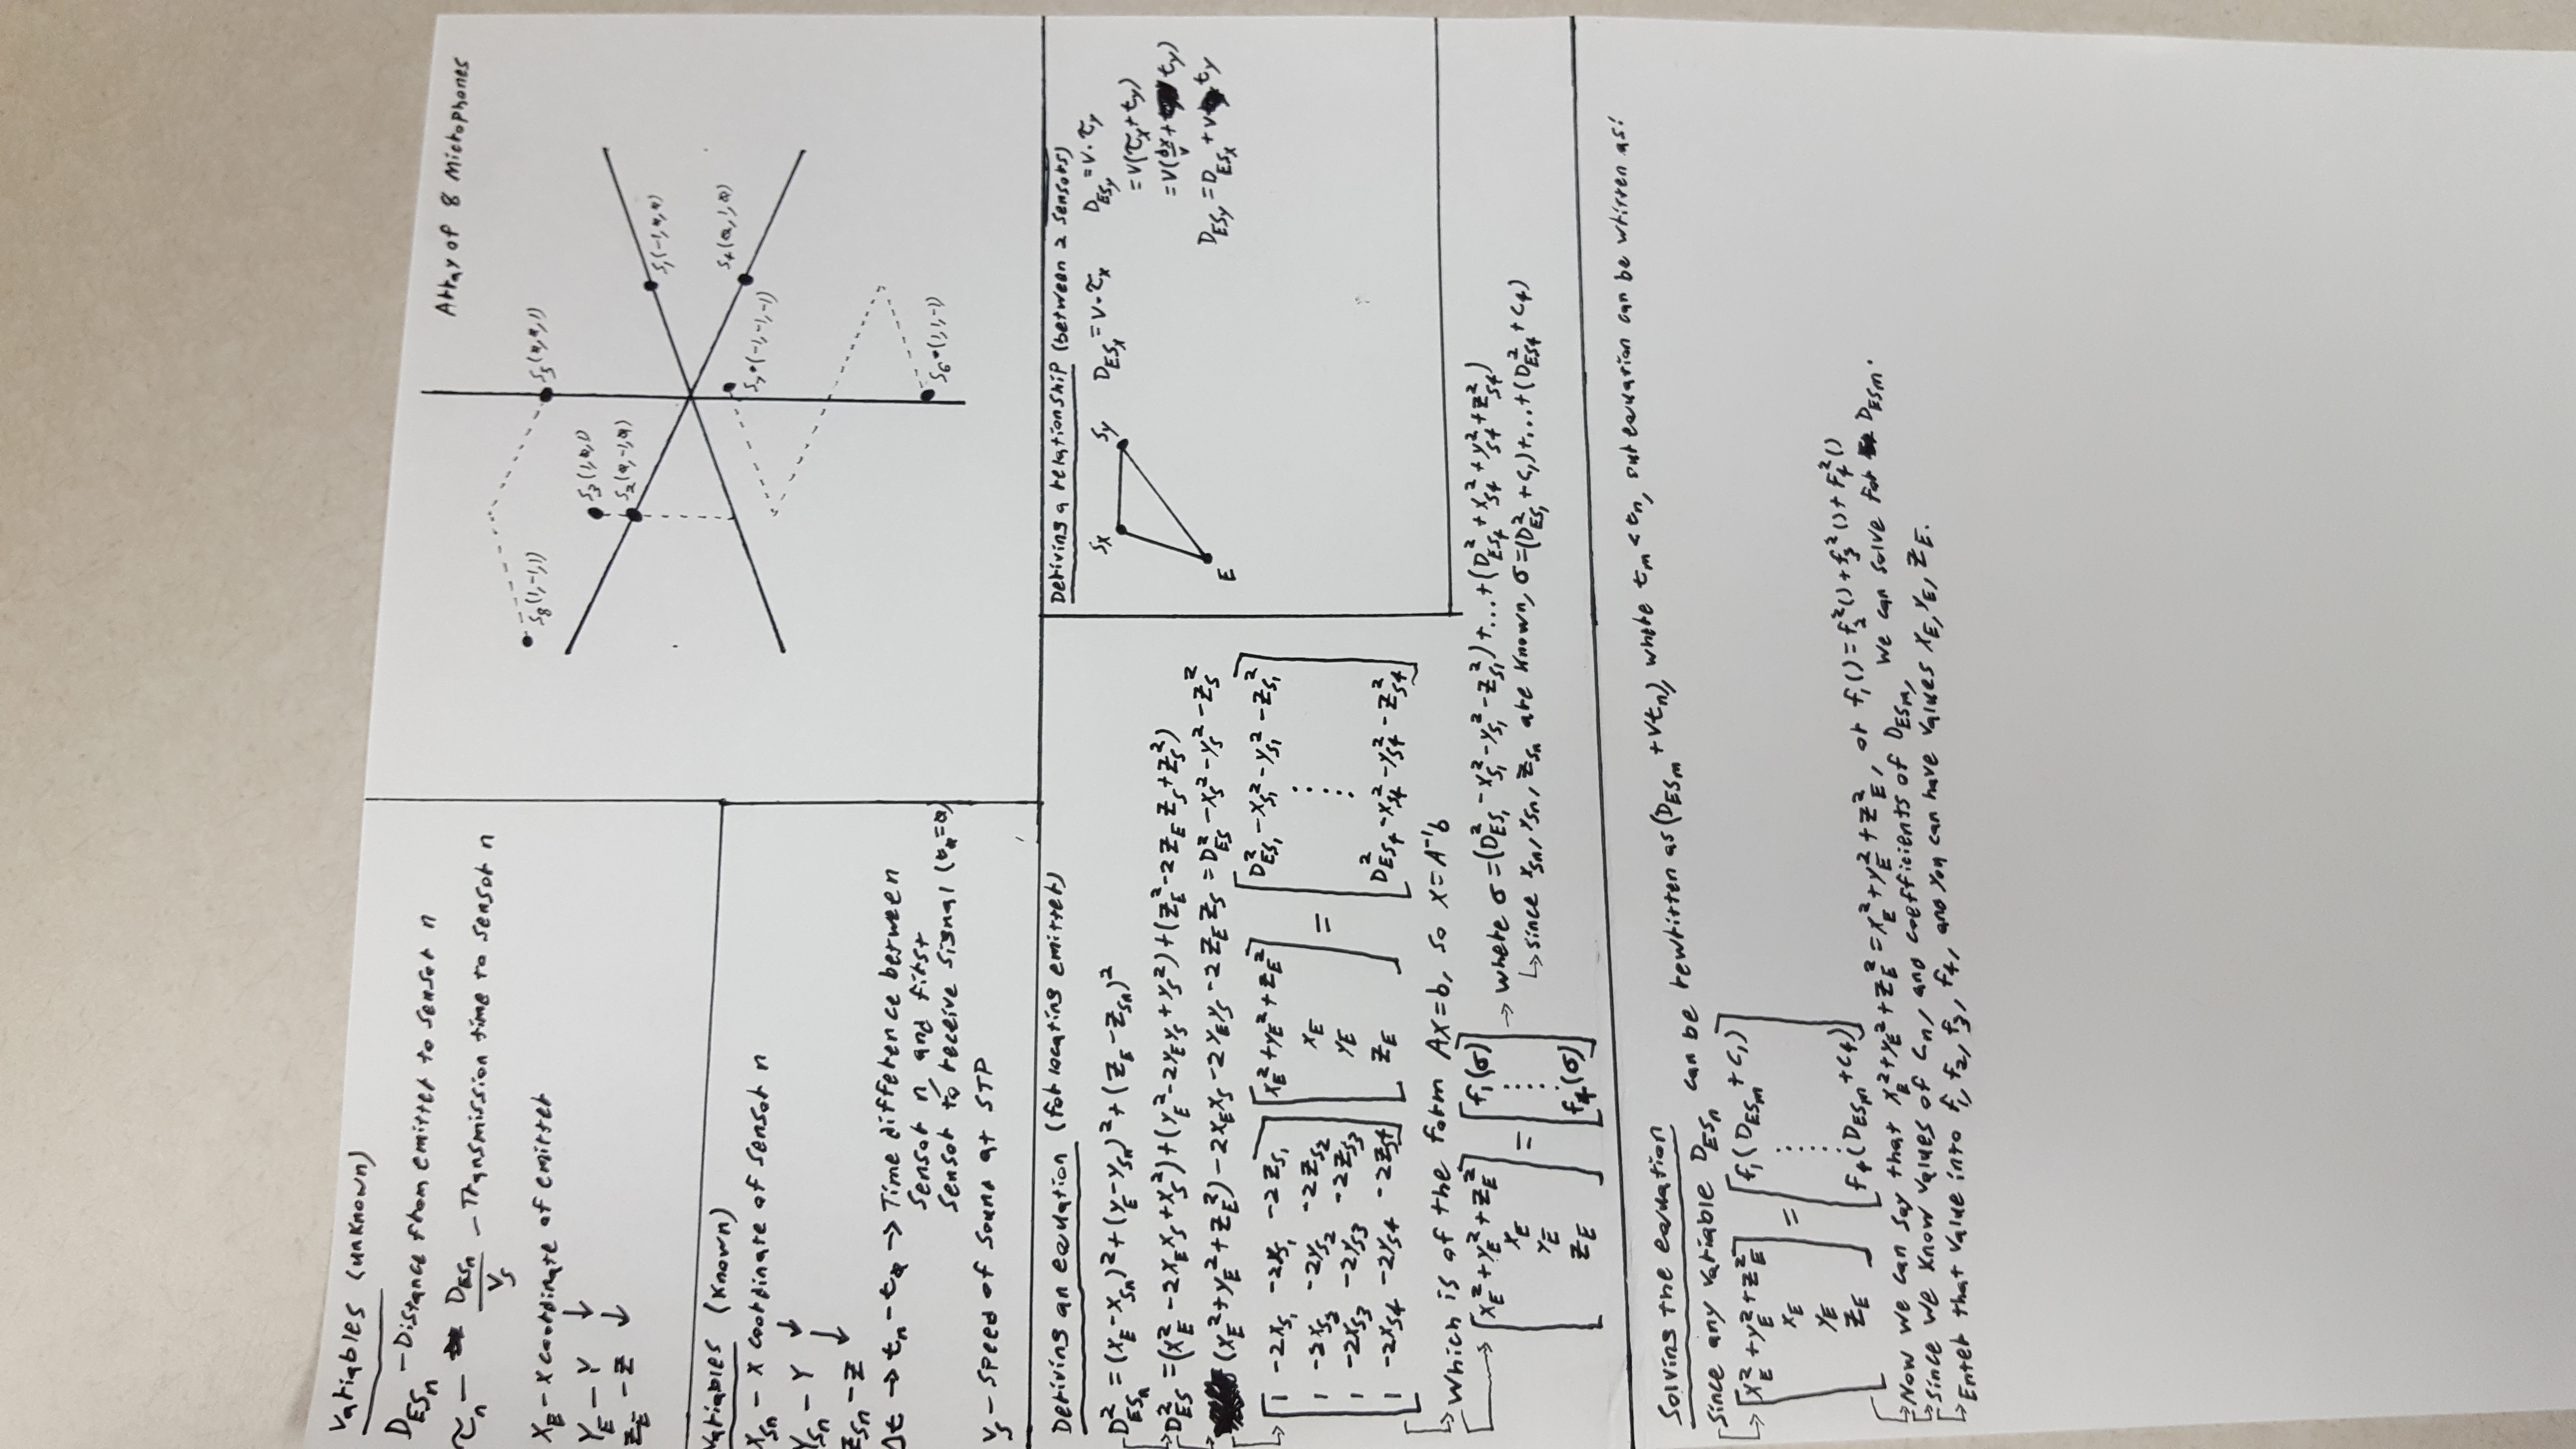 Variables (unknown)
D_ES_n – Distance from emitter to sensor n
τ_n – D_ES_n / v_s – Transmission time to sensor n
X_E – X coordinate of emitter
Y_E – Y ↓
Z_E – Z ↓
Variables (known)
X_Sn – X coordinate of sensor n
Y_Sn – Y ↓
Z_Sn – Z ↓
Δt → t_n – t_0 → Time difference between
sensor n, and first
sensor to receive signal (t_0=0)
v_s – Speed of sound at STP
Array of 8 Microphones
S_8 (1,-1,1)
S_5 (0,0,1)
S_3 (1,0,1)
S_2 (0,-1,0)
S_1 (-1,0,0)
S_4 (0,1,0)
S_7 • (-1,-1,-1)
S_6 • (1,1,-1)
Deriving an equation (for locating emitter)
D²_ES_n = (X_E – X_Sn)² + (Y_E – Y_Sn)² + (Z_E – Z_Sn)²
→ D²_ES = (X²_E – 2X_E X_S + X²_S) + (Y²_E – 2Y_E Y_S + Y²_S) + (Z²_E – 2Z_E Z_S + Z²_S)
→ (X_E² + Y_E² + Z_E²) – 2X_E X_S – 2Y_E Y_S – 2Z_E Z_S = D²_ES – X_S² – Y_S² – Z_S²
→ [1 -2X_S1 -2Y_S1 -2Z_S1] [X_E² + Y_E² + Z_E²] [D²_ES1 – X²_S1 – Y²_S1 – Z²_S1]
1 -2X_S2 -2Y_S2 -2Z_S2 X_E = ⋮
1 -2X_S3 -2Y_S3 -2Z_S3 Y_E ⋮
1 -2X_S4 -2Y_S4 -2Z_S4 Z_E D²_ES4 – X²_S4 – Y²_S4 – Z²_S4
→ Which is of the form Ax=b, so x=A⁻¹b
→ [X²_E + Y²_E + Z²_E] [f_1(σ)] → where σ = (D²_ES1 – X²_S1 – Y²_S1 – Z²_S1) + ... + (D²_ES4 + X²_S4 + Y²_S4 + Z²_S4)
X_E = ⋮ ↳ since X_Sn, Y_Sn, Z_Sn are known, σ = (D²_ES1 + C_1) + ... + (D²_ES4 + C_4)
Y_E ⋮
Z_E f_4(σ)
Deriving a relationship (between 2 sensors)
S_X S_Y D_ESx = v·τ_x D_ESy = v·τ_y
= v(τ_x + t_y)
= v(dx/v + t_y)
D_ESy = D_ESx + v t_y
E
Solving the equation
Since any variable D_ESn can be rewritten as (D_ESm + Vt_n), where t_m < t_n, our equation can be written as:
→ [X²_E + Y²_E + Z²_E] [f_1(D_ESm + C_1)]
X_E = ⋮
Y_E ⋮
Z_E f_4(D_ESm + C_4)
↳ Now we can say that X_E² + Y_E² + Z_E² = X_E² + Y_E² + Z²_E, or f_1() = f_2²() + f_3²() + f_4²()
↳ Since we know values of C_n, and coefficients of D_ESm, we can solve for D_ESm.
↳ Enter that value into f_1, f_2, f_3, f_4, and you can have values X_E, Y_E, Z_E.